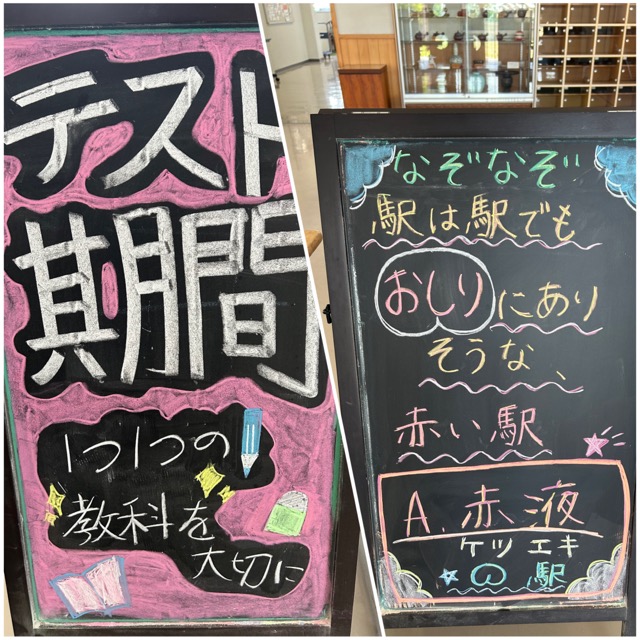 テスト
期間
1つ1つの
教科を
大切に
なぞなぞ
駅は駅でも
おしりにあり
そうな、
赤い駅
A.赤液
ケツエキ
の駅